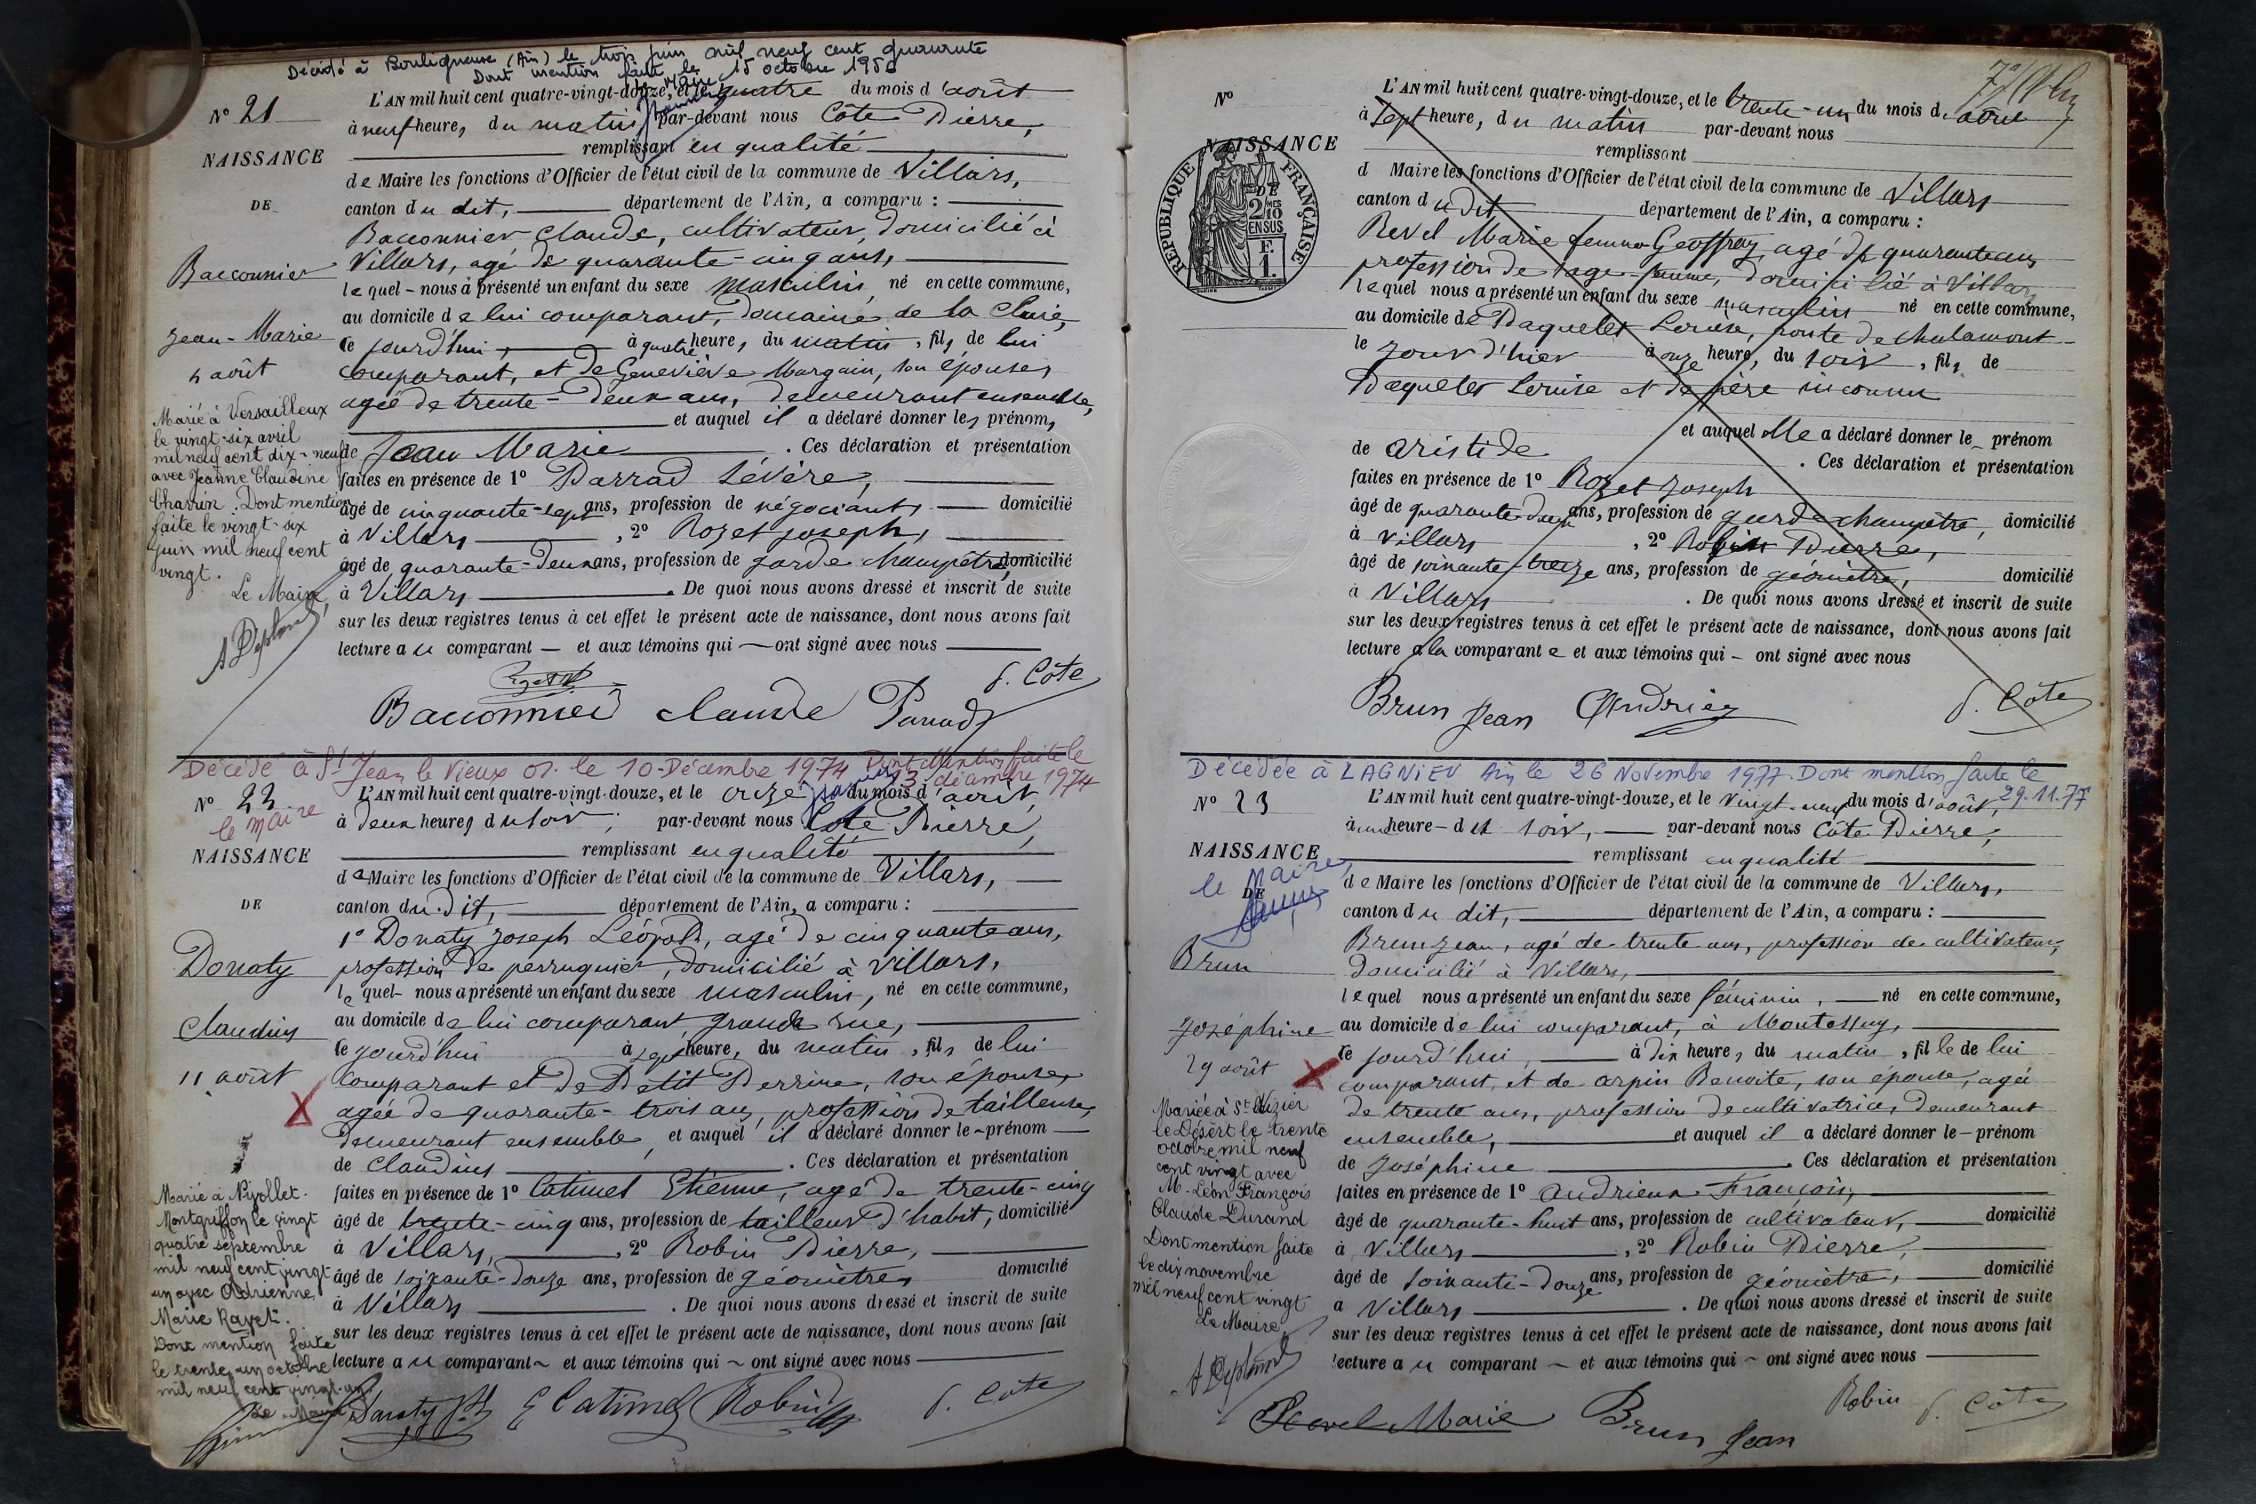 Décédé à Bouligneux (Ain) le trois juin mil neuf cent quarante
Dont mention faite le 15 octobre 1950
L'AN mil huit cent quatre-vingt-douze, et le quatre du mois d'août
N° 21
à neuf heures du matin par-devant nous Côte Pierre,
remplissant en qualité
NAISSANCE
de Maire les fonctions d'Officier de l'état civil de la commune de Villars,
DE
canton du dit, département de l'Ain, a comparu :
Baconnier Claude, cultivateur, domicilié à
Baconnier
Villars, agé de quarante-cinq ans,
lequel nous a présenté un enfant du sexe masculin né en cette commune,
au domicile de lui comparant, domaine de la
Jean-Marie
le jourd'hui, à quatre heures du matin, fils de lui
4 août
comparant, et de Geneviève Margain, son épouse,
agée de trente-deux ans, demeurant ensemble,
et auquel il a déclaré donner les prénoms
de Jean Marie . Ces déclaration et présentation
faites en présence de 1° Parrad Sévère,
âgé de cinquante-sept ans, profession de négociant domicilié
à Villars, 2° Rozet Joseph,
âgé de quarante-deux ans, profession de garde champêtre, domicilié
à Villars . De quoi nous avons dressé et inscrit de suite
sur les deux registres tenus à cet effet le présent acte de naissance, dont nous avons fait
lecture au comparant et aux témoins qui ont signé avec nous
Marié à Versailleux
le vingt-six avril
mil neuf cent dix-neuf
avec Jeanne Claudine
Charrin. Dont mention
faite le vingt-six
juin mil neuf cent
vingt.
Le Maire
Rozet
P. Côte
Baconnier Claude Parrad
Décédé à St Jean le Vieux 01. le 10 Décembre 1974 Dont Mention faite le
13 décembre 1974
le maire
N° 22
L'AN mil huit cent quatre-vingt-douze, et le onze du mois d'août,
à deux heures du soir, par-devant nous Côte Pierre,
remplissant en qualité
NAISSANCE
de Maire les fonctions d'Officier de l'état civil de la commune de Villars,
DE
canton du dit, département de l'Ain, a comparu :
1° Donaty Joseph Léopold, agé de cinquante ans,
Donaty
profession de perruquier, domicilié à Villars,
lequel nous a présenté un enfant du sexe masculin, né en cette commune,
Claudius
au domicile de lui comparant grande rue,
le jourd'hui à sept heure, du matin, fils de lui
11 août
comparant et de Petit Perrine, son épouse,
agée de quarante-trois ans, profession de tailleuse,
demeurant ensemble, et auquel il a déclaré donner le prénom
de Claudius . Ces déclaration et présentation
faites en présence de 1° Catimel Etienne, agé de trente-cinq
âgé de trente-cinq ans, profession de tailleur d'habit, domicilié
à Villars, 2° Robin Pierre,
âgé de soixante-douze ans, profession de géomètre domicilié
à Villars . De quoi nous avons dressé et inscrit de suite
sur les deux registres tenus à cet effet le présent acte de naissance, dont nous avons fait
lecture au comparant et aux témoins qui ont signé avec nous
Marié à Nivollet-
Montgriffon le vingt
quatre septembre
mil neuf cent vingt
un avec Adrienne
Marie Ravet.
Dont mention faite
le trente un octobre
mil neuf cent vingt-un
Le Maire
Donaty E Catimel Robin P. Côte
N°
L'AN mil huit cent quatre-vingt-douze, et le trente-un du mois d'août
à sept heure, du matin par-devant nous
NAISSANCE
remplissant
d Maire les fonctions d'Officier de l'état civil de la commune de Villars
DE
RÉPUBLIQUE FRANÇAISE
2/10 MES
EN SUS
F.
1.
canton du dit département de l'Ain, a comparu :
Revel Marie femme Geoffray, agé de quarante ans
profession de sage-femme, domicilié à Villars
lequel nous a présenté un enfant du sexe masculin né en cette commune,
au domicile de Paquelet Louise, route de Chalamont
le jour d'hier à onze heure, du soir, fils de
Paquelet Louise et de père inconnu
et auquel elle a déclaré donner le prénom
de Aristide . Ces déclaration et présentation
faites en présence de 1° Rozet Joseph
âgé de quarante-deux ans, profession de garde champêtre, domicilié
à Villars, 2° Robin Pierre,
âgé de soixante-treize ans, profession de géomètre, domicilié
à Villars . De quoi nous avons dressé et inscrit de suite
sur les deux registres tenus à cet effet le présent acte de naissance, dont nous avons fait
lecture à la comparante et aux témoins qui ont signé avec nous
Brun Jean Andrieu P. Côte
Décédée à LAGNIEU Ain le 26 Novembre 1977. Dont mention faite le
29.11.77
le Maire,
N° 23
L'AN mil huit cent quatre-vingt-douze, et le vingt-neuf du mois d'août,
à une heure du soir, par-devant nous Côte Pierre,
NAISSANCE
remplissant en qualité
DE
de Maire les fonctions d'Officier de l'état civil de la commune de Villars,
canton du dit, département de l'Ain, a comparu :
Brun Jean, agé de trente ans, profession de cultivateur,
Brun
domicilié à Villars,
lequel nous a présenté un enfant du sexe féminin, né en cette commune,
Joséphine
au domicile de lui comparant, à Montessuy,
29 août
le jourd'hui, à dix heures du matin, fille de lui
comparant, et de Arpin Benoite, son épouse, agée
de trente ans, profession de cultivatrice, demeurant
ensemble, et auquel il a déclaré donner le prénom
de Joséphine . Ces déclaration et présentation
faites en présence de 1° Andrieux François,
âgé de quarante-huit ans, profession de cultivateur, domicilié
à Villars, 2° Robin Pierre,
âgé de soixante-douze ans, profession de géomètre, domicilié
à Villars . De quoi nous avons dressé et inscrit de suite
sur les deux registres tenus à cet effet le présent acte de naissance, dont nous avons fait
lecture au comparant et aux témoins qui ont signé avec nous
Mariée à St Nizier
le Désert le trente
octobre mil neuf
cent vingt avec
M. Léon François
Claude Durand
Dont mention faite
le dix novembre
mil neuf cent vingt
Le Maire
Revel Marie Brun Jean Robin P. Côte